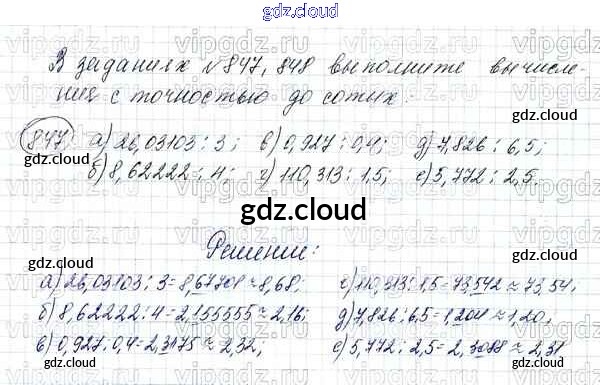 gdz.cloud
В заданиях №847, 848 выполните вычисле-
ния с точностью до сотых:
847 а) 26,03103 : 3; в) 0,927 : 0,4; д) 7,826 : 6,5;
б) 8,62222 : 4; г) 110,313 : 1,5; е) 5,772 : 2,5.
gdz.cloud
Решение:
а) 26,03103 : 3 = 8,67701 ≈ 8,68; г) 110,313 : 1,5 = 73,542 ≈ 73,54;
б) 8,62222 : 4 = 2,155555 ≈ 2,16; д) 7,826 : 6,5 = 1,204 ≈ 1,20;
в) 0,927 : 0,4 = 2,3175 ≈ 2,32; е) 5,772 : 2,5 = 2,3088 ≈ 2,31